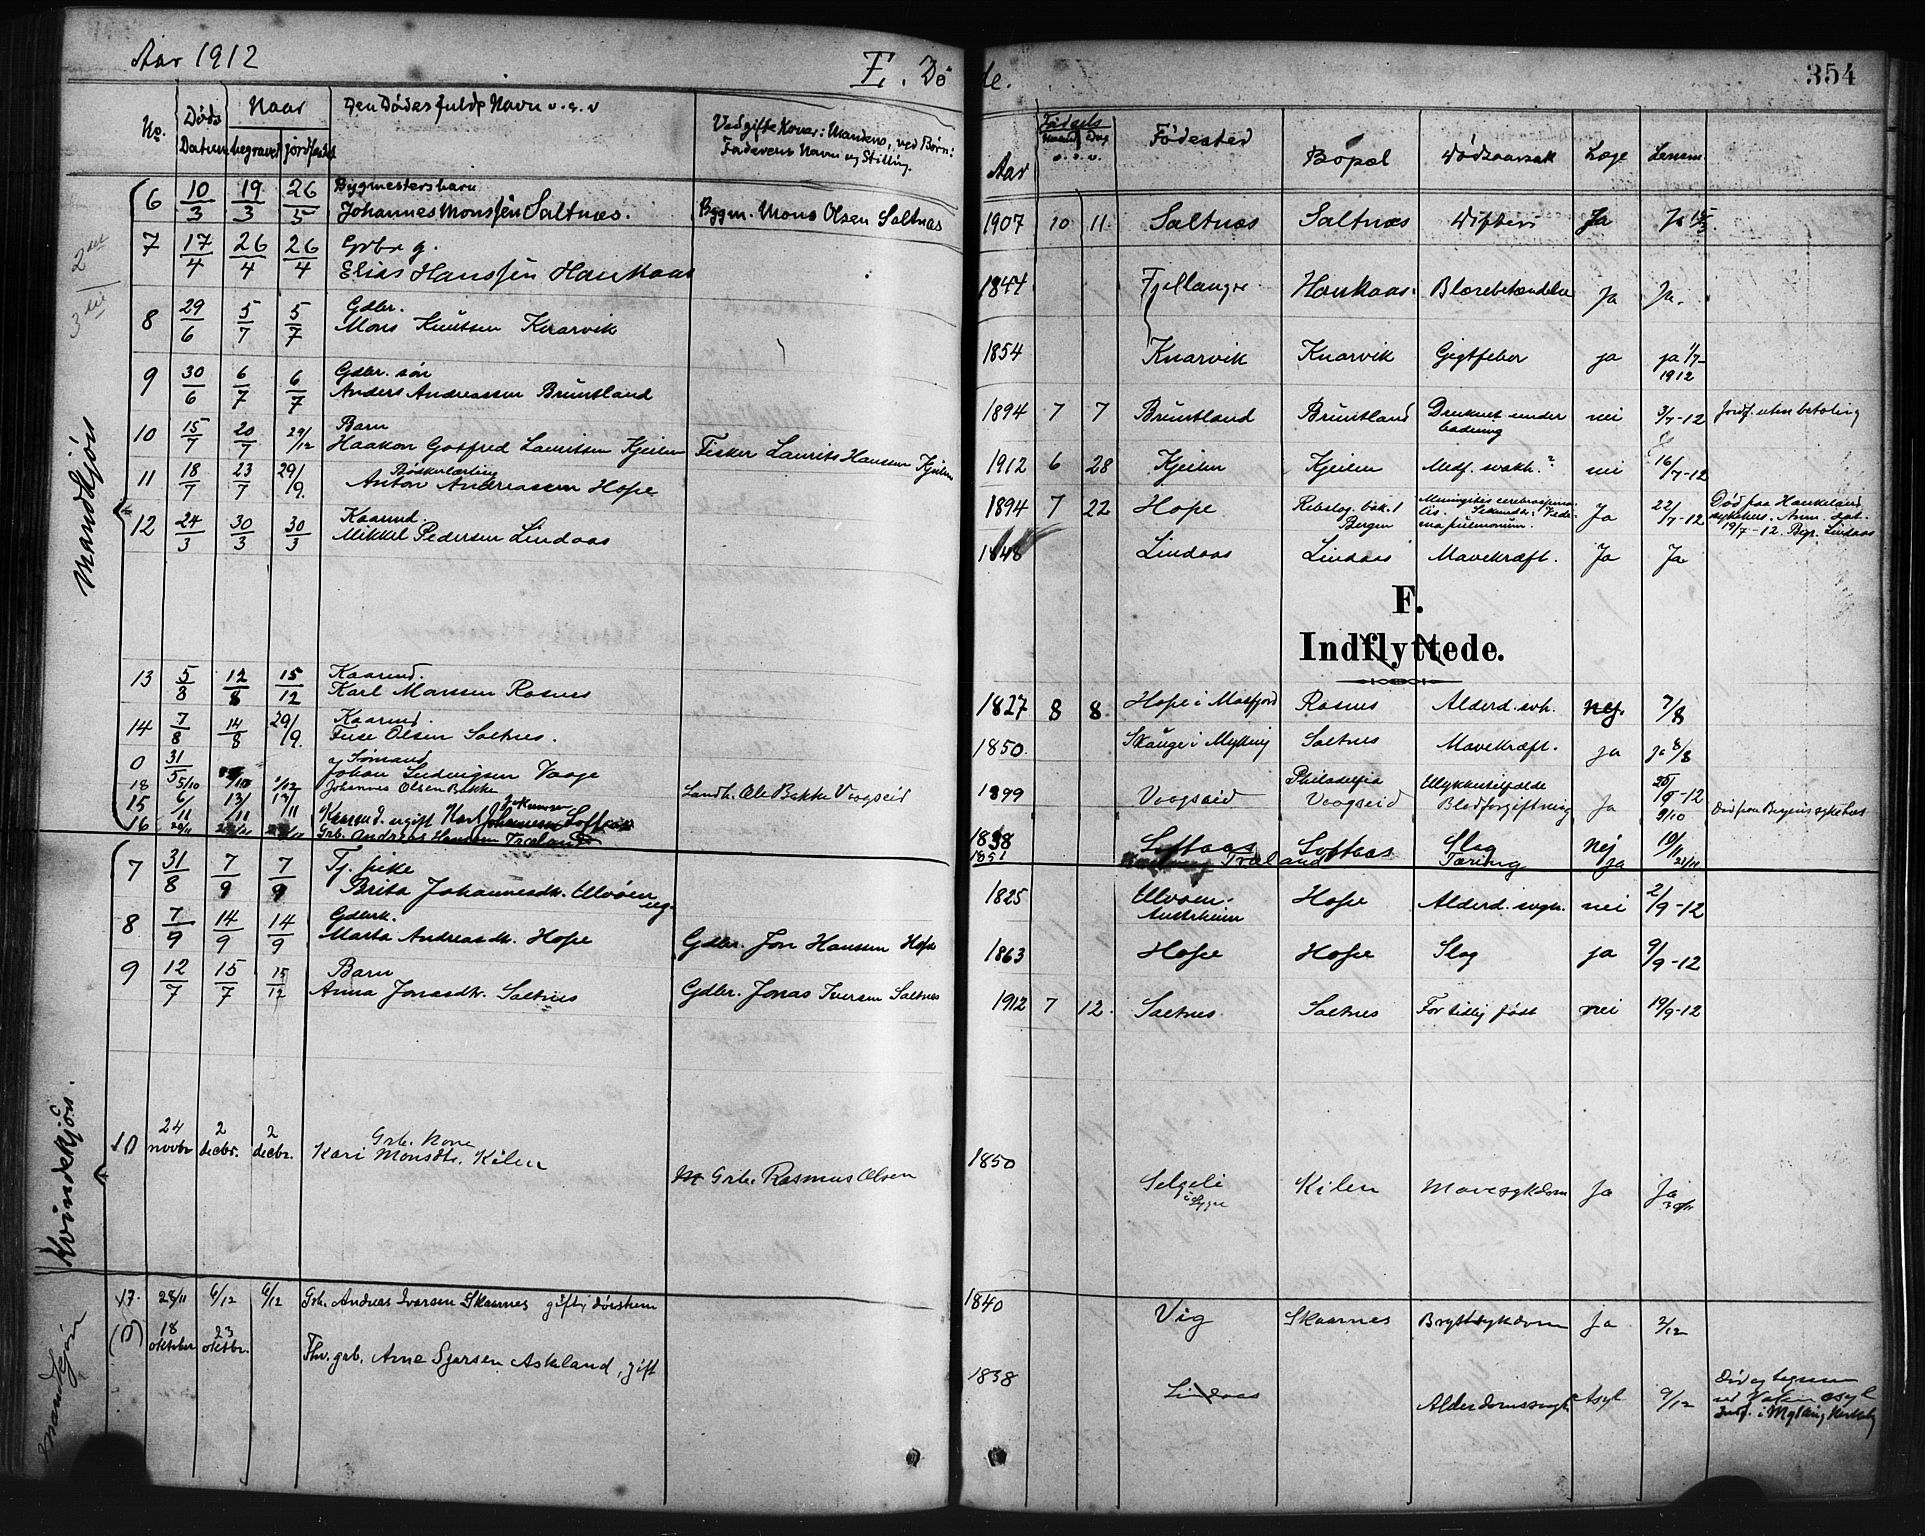 Aar 1912
E. Dø
de.
354
No. Døds Datum Naar begravet jordfæstet Den Dødes fulde Navn o.s.v Ved gifte Koner: Mandens, ved Børn: Faderens Navn og Stilling.
Aar Fødsels Maaned Dag o.s.v. Fødested Bopæl Dødsaarsak Læge Lensm.
Mandkjøn
6 10/3 19/3 26/5 Bygmestersbarn
Johannes Monssen Saltnæs. Bygm. Mons Olsen Saltnæs 1907 10 11. Saltnæs Saltnæs Difteri Ja Ja 15/3.
7 17/4 26/4 26/4 Gbr g.
Elias Hanssen Haukaas 1844 Fjellanger Haukaas. Blærebetændelse Ja Ja.
8 29/6 5/7 5/7 Gdbr.
Mons Knutsen Knarvik 1854 Knarvik Knarvik Gigtfeber ja ja 1/7-1912
9 30/6 6/7 6/7 Gdbr. søn
Anders Andreassen Bruntland 1894 7 7 Bruntland Bruntland Druknet under badning nei 3/7-12 Jordf. uten betaling
10 15/7 20/7 29/12 Barn
Haakon Gotfred Lauritsen Kjeilen Fisker Laurits Hansen Kjeilen 1912 6 28 Kjeilen Kjeilen Medf. svakh.? nei 16/7-12
11 18/7 23/7 29/9. Bøkkerlærling
Anton Andreassen Hope 1894 7 22 Hope Rebslag. bak. 1 Bergen Meningitis cerebrospinalis. Ja 22/7-12 Død paa Haukeland sykehus. Anm. dat. 19/7-12. Begr. Lindaas
12 24/3 30/3 30/3 Kaarmd.
Mikkel Pedersen Lindaas 1848 Lindaas Lindaas Mavekræft. Ja Ja
F.
Indflyttede.
13 5/8 12/8 15/12 Kaarmd.
Karl Monsen Rosnes 1827 8 8 Hope i Masfjord Rosnes Alderd. svk. nej. 7/8
14 7/8 14/8 29/9. Kaarmd.
Olsen Saltnes. 1850. Skauge i Mykling Saltnes Mavekræft. ja ja 8/8
0 31/5 Sømand
Johan Ludvigsen Vaage 1899 Philadelfia Ulykkestilfælde
18 5/10 Johannes Olsen Bakke Landh. Ole Bakke Voogseid Voogseid Voogseid Blodforgiftning Ja 9/10 Død paa Bergens sykehus
15 6/11 13/11 13/11 Kaarmd. ugift Karl Johannesen Softaas 1838 Softaas Softaas Slag Nej 19/11
16 Grb. Andreas Hansen Træland 1851 Træland Tæring ja 21/11
Kvindekjøn.
7 31/8 7/9 7/9 Tj. pike
Brita Johannesdtr. Ulvøen ug. 1825 Ulvøen. Austrheim Hope Alderd. svgh. nei 2/9-12
8 7/9 14/9 14/9 Gdbrk.
Marta Andreasdtr. Hope Gdbr. Jon Hansen Hope 1863 Hope Hope Slag ja 9/9-12
9 12/7 15/7 15/12 Barn
Anna Jonasdtr. Saltnes Gdbr. Jonas Iversen Saltnes 1912 7 12. Saltnes Saltnes For tidlig født nei 19/9-12
10 24 novbr 2 decbr. 2 decbr. Grb. Kone
Kari Monsdtr. Kilen Grb. Rasmus Olsen 1850 Selgeli i Hygge Kilen Mavesykdom Ja Ja 30/11
Mandkjøn
17. 28/11 6/12 6/12 Grb. Andreas Ivarsen Skaarnes gift 1840 Vig Skaarnes Brystsykdom Ja 2/12
(0) 18 oktober 23 oktbr. Fhv. grb. Arne Sjursen Askeland, gift 1838 Lindaas Alderdomssvagh. Asyl 9/12 Død og begraven ved asyl Jordf. i Mykling Kirkeby